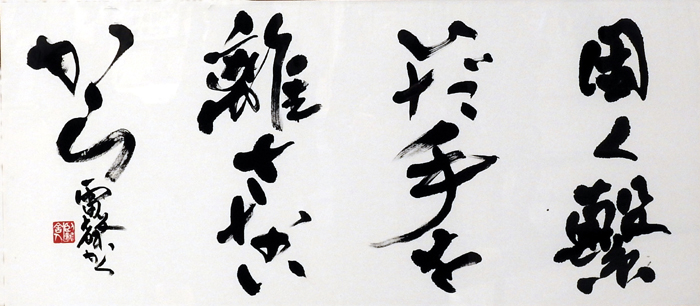 固く繋
いだ手を
離さない
から
雷馨かく